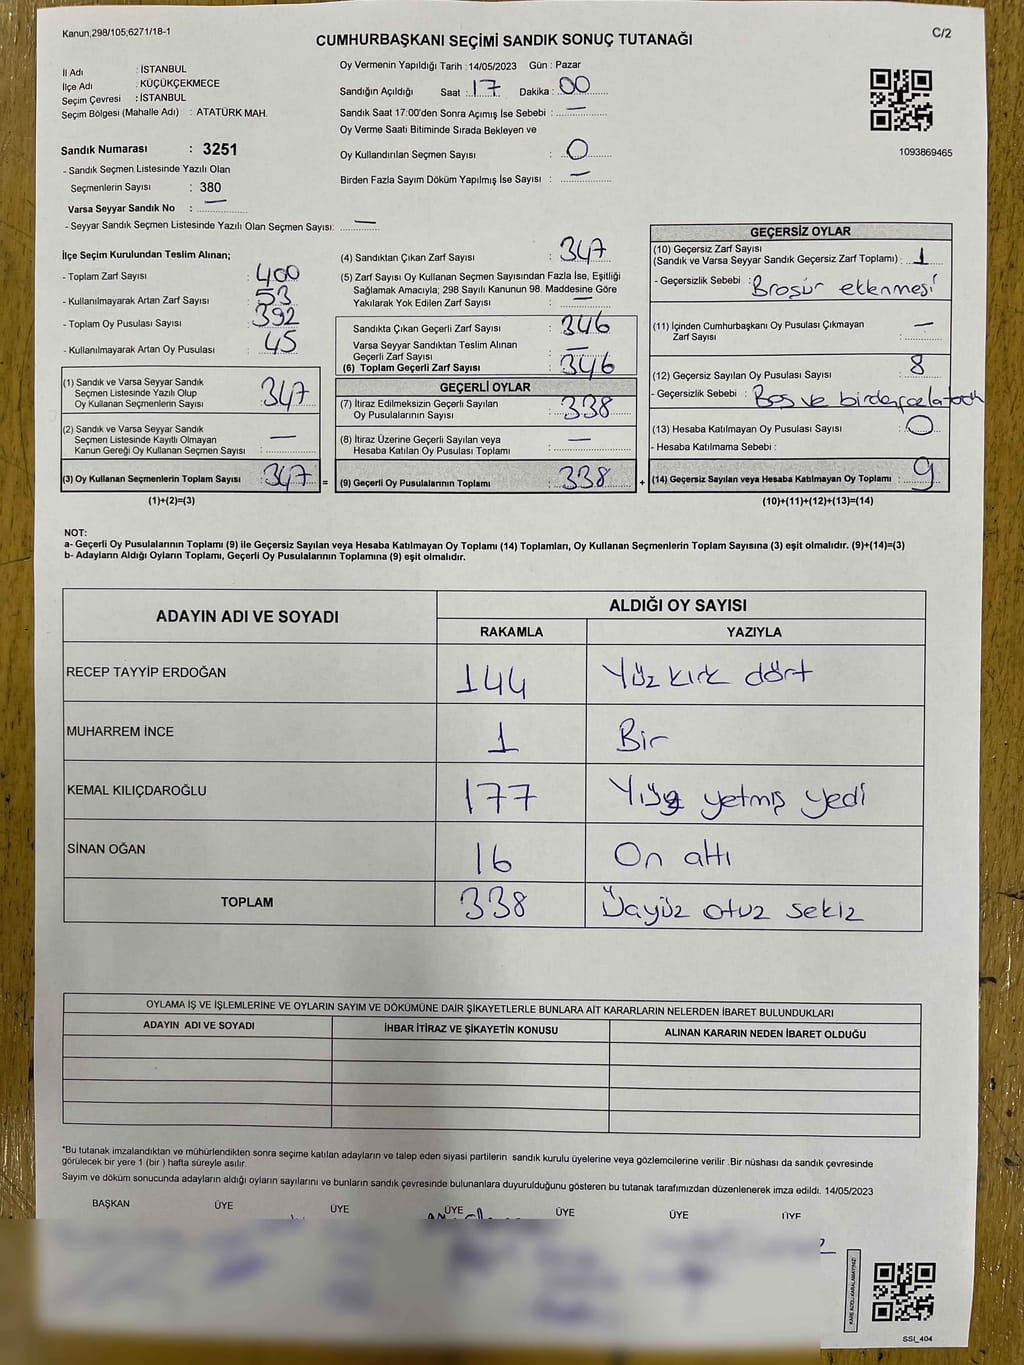 Kanun;298/105;6271/18-1
C/2
CUMHURBAŞKANI SEÇİMİ SANDIK SONUÇ TUTANAĞI
İl Adı : İSTANBUL
İlçe Adı : KÜÇÜKÇEKMECE
Seçim Çevresi : İSTANBUL
Seçim Bölgesi (Mahalle Adı) : ATATÜRK MAH.
Sandık Numarası : 3251
- Sandık Seçmen Listesinde Yazılı Olan
Seçmenlerin Sayısı : 380
Varsa Seyyar Sandık No : —
- Seyyar Sandık Seçmen Listesinde Yazılı Olan Seçmen Sayısı: —
Oy Vermenin Yapıldığı Tarih : 14/05/2023 Gün : Pazar
Sandığın Açıldığı Saat : 17 Dakika : 00
Sandık Saat 17:00'den Sonra Açımış İse Sebebi : —
Oy Verme Saati Bitiminde Sırada Bekleyen ve
Oy Kullandırılan Seçmen Sayısı : 0
Birden Fazla Sayım Döküm Yapılmış İse Sayısı : —
1093869465
İlçe Seçim Kurulundan Teslim Alınan;
- Toplam Zarf Sayısı : 400
- Kullanılmayarak Artan Zarf Sayısı : 53
- Toplam Oy Pusulası Sayısı : 392
- Kullanılmayarak Artan Oy Pusulası : 45
(1) Sandık ve Varsa Seyyar Sandık
Seçmen Listesinde Yazılı Olup
Oy Kullanan Seçmenlerin Sayısı : 347
(2) Sandık ve Varsa Seyyar Sandık
Seçmen Listesinde Kayıtlı Olmayan
Kanun Gereği Oy Kullanan Seçmen Sayısı : —
(3) Oy Kullanan Seçmenlerin Toplam Sayısı : 347 =
(1)+(2)=(3)
(4) Sandıktan Çıkan Zarf Sayısı : 347
(5) Zarf Sayısı Oy Kullanan Seçmen Sayısından Fazla İse, Eşitliği
Sağlamak Amacıyla; 298 Sayılı Kanunun 98. Maddesine Göre
Yakılarak Yok Edilen Zarf Sayısı : —
Sandıkta Çıkan Geçerli Zarf Sayısı : 346
Varsa Seyyar Sandıktan Teslim Alınan
Geçerli Zarf Sayısı : —
(6) Toplam Geçerli Zarf Sayısı : 346
GEÇERLİ OYLAR
(7) İtiraz Edilmeksizin Geçerli Sayılan
Oy Pusulalarının Sayısı : 338
(8) İtiraz Üzerine Geçerli Sayılan veya
Hesaba Katılan Oy Pusulası Toplamı : —
(9) Geçerli Oy Pusulalarının Toplamı : 338 +
GEÇERSİZ OYLAR
(10) Geçersiz Zarf Sayısı
(Sandık ve Varsa Seyyar Sandık Geçersiz Zarf Toplamı) : 1
- Geçersizlik Sebebi : Broşür eklenmesi
(11) İçinden Cumhurbaşkanı Oy Pusulası Çıkmayan
Zarf Sayısı : —
(12) Geçersiz Sayılan Oy Pusulası Sayısı : 8
- Geçersizlik Sebebi : Boş ve birden
(13) Hesaba Katılmayan Oy Pusulası Sayısı : 0
- Hesaba Katılmama Sebebi :
(14) Geçersiz Sayılan veya Hesaba Katılmayan Oy Toplamı : 9
(10)+(11)+(12)+(13)=(14)
NOT:
a- Geçerli Oy Pusulalarının Toplamı (9) ile Geçersiz Sayılan veya Hesaba Katılmayan Oy Toplamı (14) Toplamları, Oy Kullanan Seçmenlerin Toplam Sayısına (3) eşit olmalıdır. (9)+(14)=(3)
b- Adayların Aldığı Oyların Toplamı, Geçerli Oy Pusulalarının Toplamına (9) eşit olmalıdır.
ADAYIN ADI VE SOYADI
ALDIĞI OY SAYISI
RAKAMLA YAZIYLA
RECEP TAYYİP ERDOĞAN 144 Yüz kırk dört
MUHARREM İNCE 1 Bir
KEMAL KILIÇDAROĞLU 177 Yüz yetmiş yedi
SİNAN OĞAN 16 On altı
TOPLAM 338 Üçyüz otuz sekiz
OYLAMA İŞ VE İŞLEMLERİNE VE OYLARIN SAYIM VE DÖKÜMÜNE DAİR ŞİKAYETLERLE BUNLARA AİT KARARLARIN NELERDEN İBARET BULUNDUKLARI
ADAYIN ADI VE SOYADI İHBAR İTİRAZ VE ŞİKAYETİN KONUSU ALINAN KARARIN NEDEN İBARET OLDUĞU
*Bu tutanak imzalandıktan ve mühürlendikten sonra seçime katılan adayların ve talep eden siyasi partilerin sandık kurulu üyelerine veya gözlemcilerine verilir .Bir nüshası da sandık çevresinde
görülecek bir yere 1 (bir ) hafta süreyle asılır.
Sayım ve döküm sonucunda adayların aldığı oyların sayılarını ve bunların sandık çevresinde bulunanlara duyurulduğunu gösteren bu tutanak tarafımızdan düzenlenerek imza edildi. 14/05/2023
BAŞKAN ÜYE ÜYE ÜYE ÜYE ÜYE ÜYE
KARE KODU KARALAMAYINIZ!
SSI_404